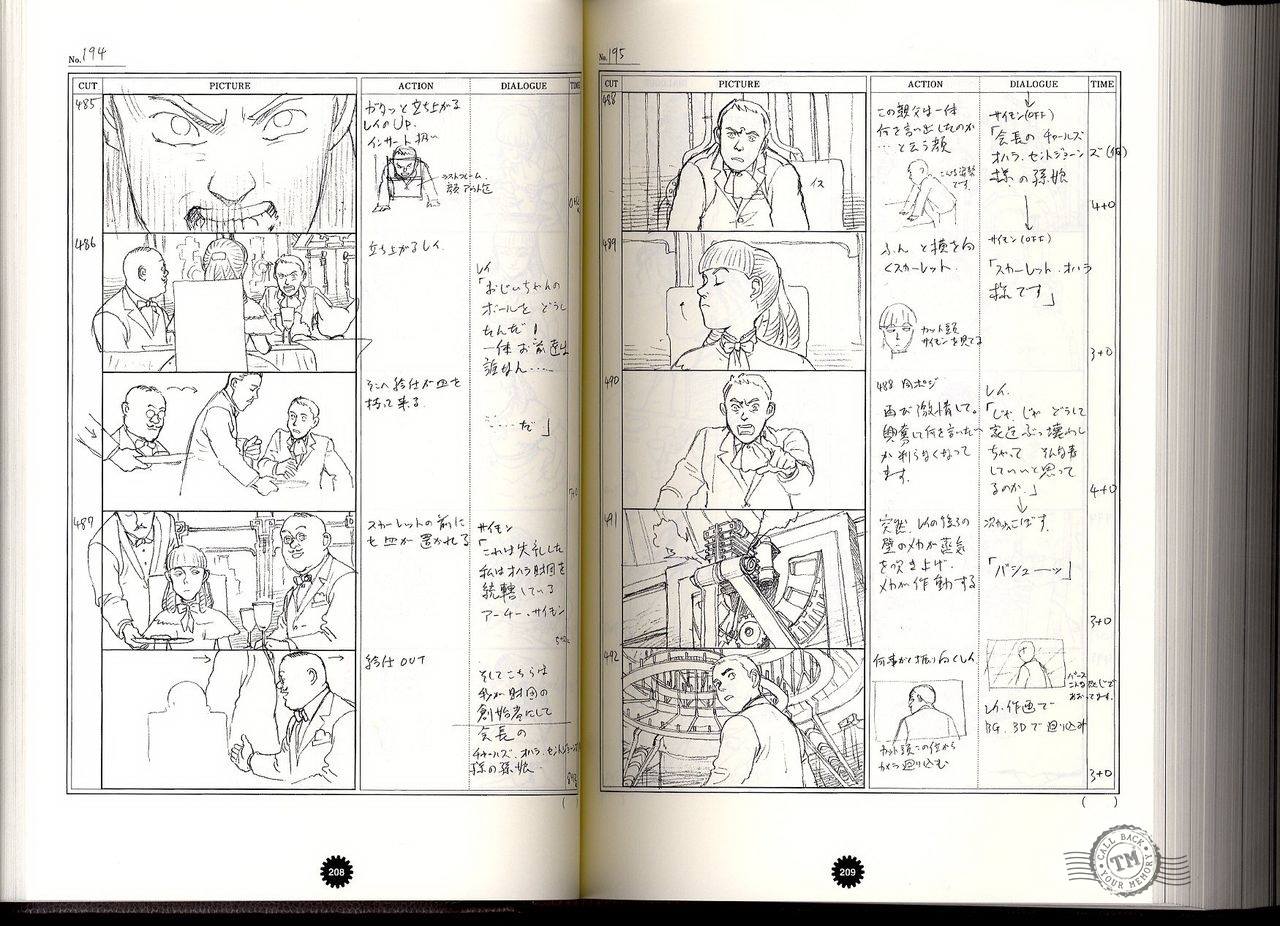 No. 194
CUT PICTURE ACTION DIALOGUE TIME
485
ガタッと立ち上がる
レイのUP.
インサート扱い
ラストフレーム
486
立ち上がるレイ.
レイ
「おじいちゃんの
ボールを どうし
たんだ!
一体お前達は
誰なん……
……だ」
そこへ給仕が皿を
持って来る.
487
スカーレットの前に
も皿が置かれる
サイモン
「これは失礼した
私はオハラ財団を
統轄している
アーチー・サイモン
給仕 OUT
そしてこちらは
我が財団の
創始者にして
会長の
チャールズ・オハラ・セントジョーンズ
様の孫娘
208
No. 195
CUT PICTURE ACTION DIALOGUE TIME
488
イス
この親父は一体
何を言い出したのか
…と云う顔
こんな姿勢
です.
サイモン(OFF)
「会長の チャールズ
オハラ.セントジョーンズ(仮)
様の孫娘
4+0
489
ふんと横を向
くスカーレット.
カット頭
サイモンを見てる
サイモン(OFF)
「スカーレット.オハラ
様です」
3+0
490
488 同ポジ
両が激情して.
興奮して何を言いたい
か判らなくなって
ます.
レイ.
「じゃ じゃ どうして
家までぶっ壊わし
ちゃって そんな事
していいと思って
るのか.」
4+0
491
突然 レイの後ろの
壁のメカが蒸気
を吹き上げ.
メカが作動する
次カットこぼす.
「バシューーッ」
3+0
492
何事かと振り向くレイ
カット頭この位から
カメラ回り込む
レイ.作画で
BG.3Dで回り込み
3+0
209
CALL BACK
TM
YOUR MEMORY